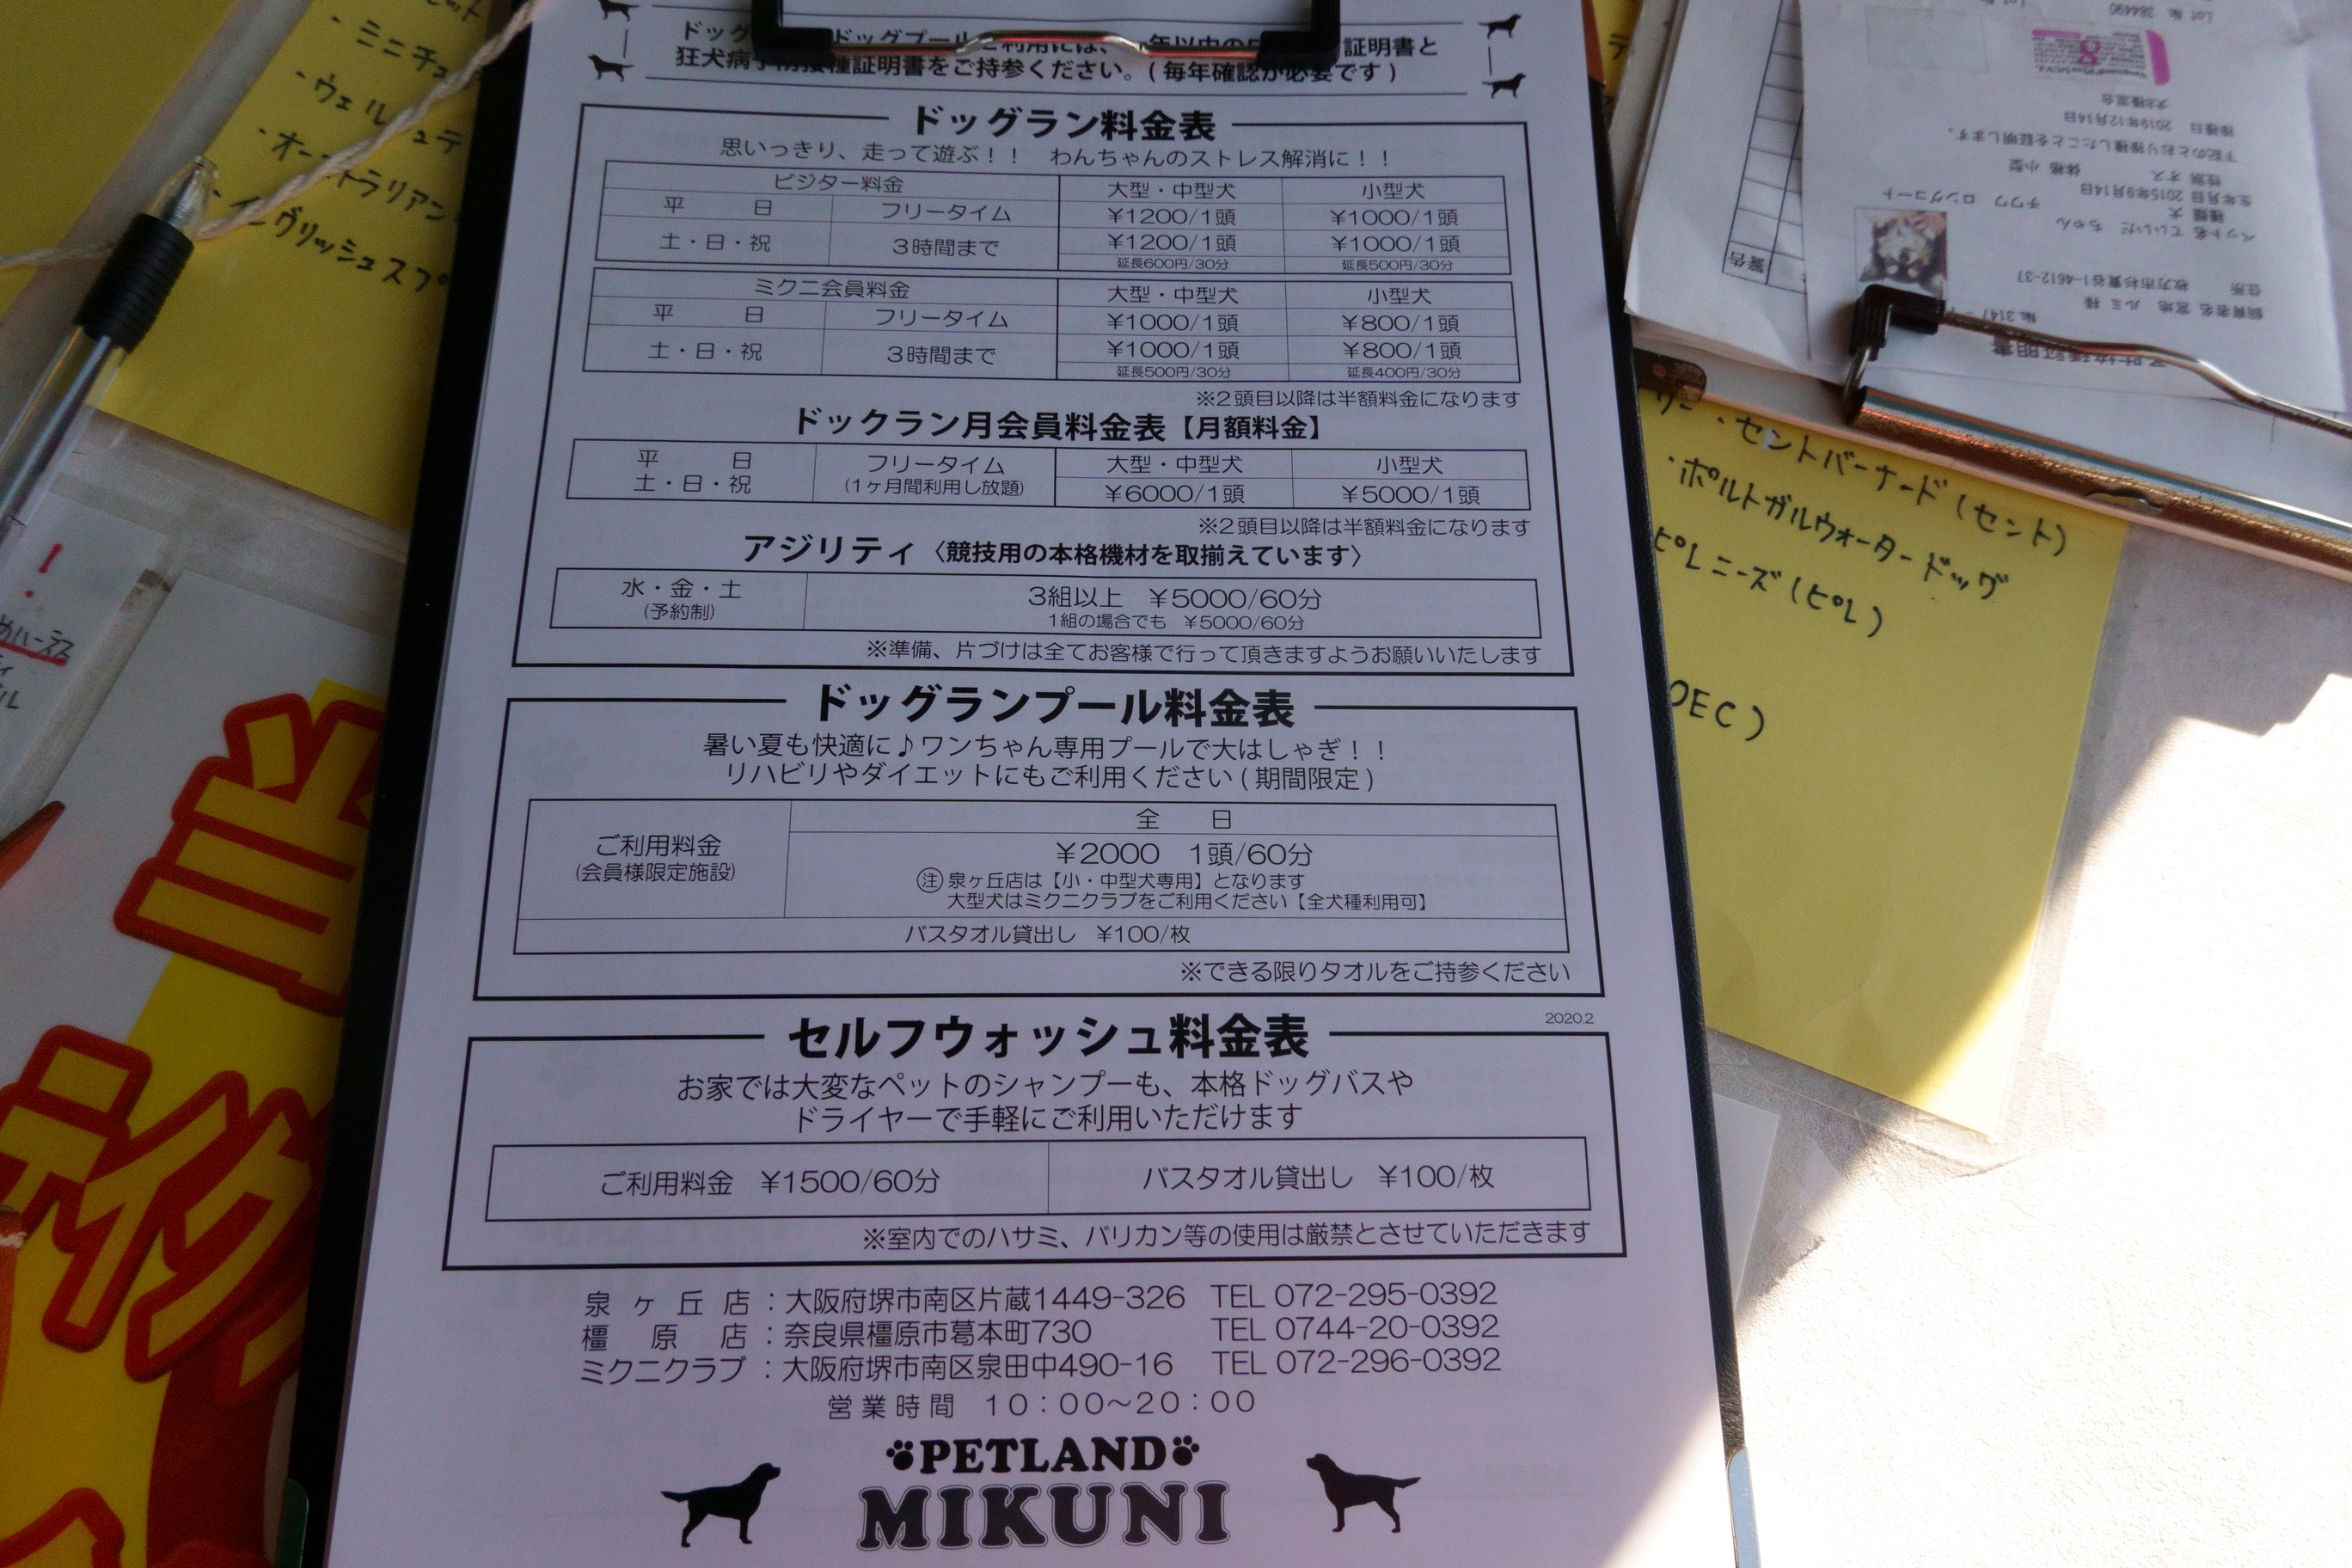 狂犬病予防接種証明書をご持参ください。(毎年確認が必要です)
ドッグラン料金表
思いっきり、走って遊ぶ！！ わんちゃんのストレス解消に！！
ビジター料金 大型・中型犬 小型犬
平日 フリータイム ¥1200/1頭 ¥1000/1頭
土・日・祝 3時間まで ¥1200/1頭 ¥1000/1頭
延長600円/30分 延長500円/30分
ミクニ会員料金 大型・中型犬 小型犬
平日 フリータイム ¥1000/1頭 ¥800/1頭
土・日・祝 3時間まで ¥1000/1頭 ¥800/1頭
延長500円/30分 延長400円/30分
※2頭目以降は半額料金になります
ドックラン月会員料金表【月額料金】
平日 フリータイム 大型・中型犬 小型犬
土・日・祝 (1ヶ月間利用し放題) ¥6000/1頭 ¥5000/1頭
※2頭目以降は半額料金になります
アジリティ〈競技用の本格機材を取揃えています〉
水・金・土 3組以上 ¥5000/60分
(予約制) 1組の場合でも ¥5000/60分
※準備、片づけは全てお客様で行って頂きますようお願いいたします
ドッグランプール料金表
暑い夏も快適に♪ワンちゃん専用プールで大はしゃぎ！！
リハビリやダイエットにもご利用ください(期間限定)
全日
ご利用料金 ¥2000 1頭/60分
(会員様限定施設) 注 泉ヶ丘店は【小・中型犬専用】となります
大型犬はミクニクラブをご利用ください【全犬種利用可】
バスタオル貸出し ¥100/枚
※できる限りタオルをご持参ください
2020.2
セルフウォッシュ料金表
お家では大変なペットのシャンプーも、本格ドッグバスや
ドライヤーで手軽にご利用いただけます
ご利用料金 ¥1500/60分 バスタオル貸出し ¥100/枚
※室内でのハサミ、バリカン等の使用は厳禁とさせていただきます
泉ヶ丘店：大阪府堺市南区片蔵1449-326 TEL 072-295-0392
橿原店：奈良県橿原市葛本町730 TEL 0744-20-0392
ミクニクラブ：大阪府堺市南区泉田中490-16 TEL 072-296-0392
営業時間 10：00～20：00
PETLAND
MIKUNI
・セントバーナード(セント)
・ポルトガルウォータードッグ
ピレニーズ(ピレ)
OEC)